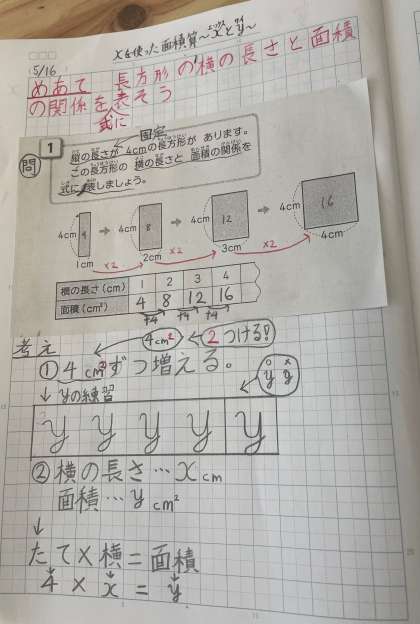 xを使った面積算〜xとy〜
エックス ワイ
5/16
めあて 長方形の横の長さと面積
の関係を表そう
式に
固定
問 1 縦の長さが 4cmの長方形が あります。
この長方形の 横の長さと 面積の関係を
式に表しましょう。
4cm 4 4cm 8 4cm 12 4cm 16
1cm ×2 2cm ×2 3cm ×2 4cm
横の長さ(cm) 1 2 3 4
面積(cm²) 4 8 12 16
+4 +4 +4
考え 4cm² 2つける!
①4cm²ずつ増える。
↓ yの練習 y y
y y y y y
②横の長さ…xcm
面積…ycm²
↓
たて×横=面積
4 × x = y